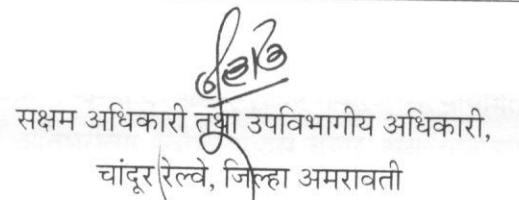 सक्षम अधिकारी तथा उपविभागीय अधिकारी,
चांदूर रेल्वे, जिल्हा अमरावती